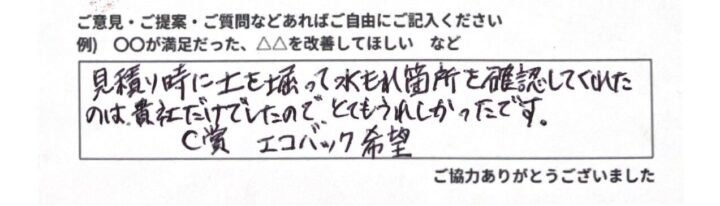 ご意見・ご提案・ご質問などあればご自由にご記入ください
例)　〇〇が満足だった、△△を改善してほしい　など
見積り時に土を堀って水もれ箇所を確認してくれた
のは、貴社だけでしたので、とてもうれしかったです。
C賞　エコバック希望
ご協力ありがとうございました